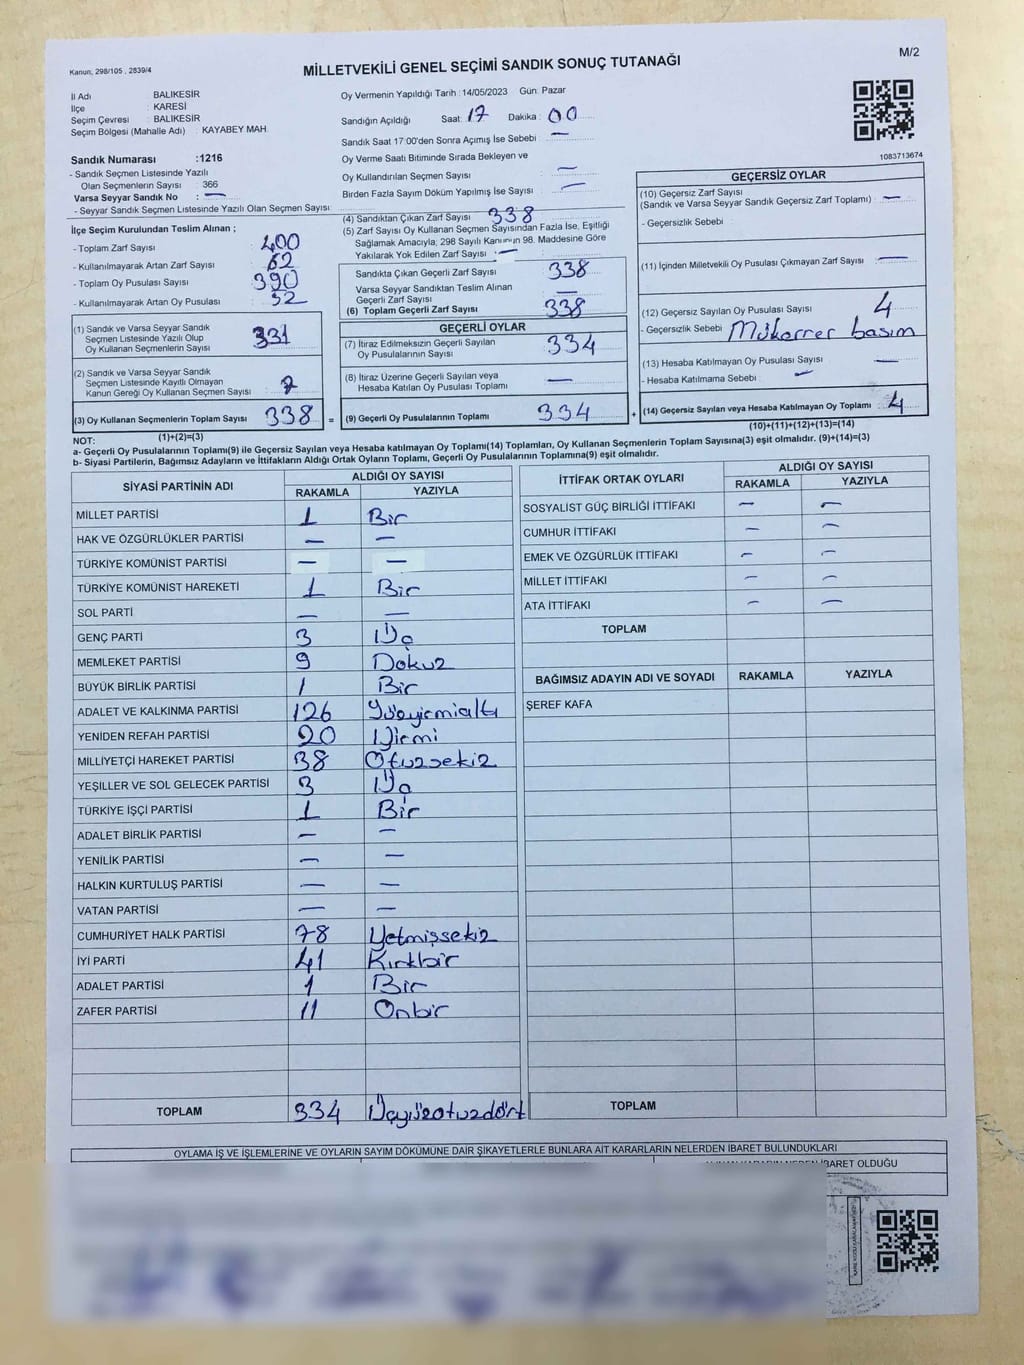 Kanun, 298/105 , 2839/4
MİLLETVEKİLİ GENEL SEÇİMİ SANDIK SONUÇ TUTANAĞI
M/2
İl Adı BALIKESİR
İlçe : KARESİ
Seçim Çevresi : BALIKESİR
Seçim Bölgesi (Mahalle Adı) : KAYABEY MAH.
Sandık Numarası :1216
- Sandık Seçmen Listesinde Yazılı
Olan Seçmenlerin Sayısı : 366
Varsa Seyyar Sandık No : —
- Seyyar Sandık Seçmen Listesinde Yazılı Olan Seçmen Sayısı:
Oy Vermenin Yapıldığı Tarih : 14/05/2023 Gün: Pazar
Sandığın Açıldığı Saat: 17 Dakika : 00
Sandık Saat 17:00'den Sonra Açımış İse Sebebi : —
Oy Verme Saati Bitiminde Sırada Bekleyen ve
Oy Kullandırılan Seçmen Sayısı : —
Birden Fazla Sayım Döküm Yapılmış İse Sayısı : —
1083713674
İlçe Seçim Kurulundan Teslim Alınan ;
- Toplam Zarf Sayısı : 400
- Kullanılmayarak Artan Zarf Sayısı : 62
- Toplam Oy Pusulası Sayısı : 390
- Kullanılmayarak Artan Oy Pusulası : 52
(1) Sandık ve Varsa Seyyar Sandık
Seçmen Listesinde Yazılı Olup
Oy Kullanan Seçmenlerin Sayısı : 331
(2) Sandık ve Varsa Seyyar Sandık
Seçmen Listesinde Kayıtlı Olmayan
Kanun Gereği Oy Kullanan Seçmen Sayısı : 7
(3) Oy Kullanan Seçmenlerin Toplam Sayısı 338 =
(1)+(2)=(3)
(4) Sandıktan Çıkan Zarf Sayısı 338
(5) Zarf Sayısı Oy Kullanan Seçmen Sayısından Fazla İse, Eşitliği
Sağlamak Amacıyla; 298 Sayılı Kanunun 98. Maddesine Göre
Yakılarak Yok Edilen Zarf Sayısı : —
Sandıkta Çıkan Geçerli Zarf Sayısı 338
Varsa Seyyar Sandıktan Teslim Alınan
Geçerli Zarf Sayısı —
(6) Toplam Geçerli Zarf Sayısı 338
GEÇERLİ OYLAR
(7) İtiraz Edilmeksizin Geçerli Sayılan
Oy Pusulalarının Sayısı : 334
(8) İtiraz Üzerine Geçerli Sayılan veya
Hesaba Katılan Oy Pusulası Toplamı : —
(9) Geçerli Oy Pusulalarının Toplamı 334 +
GEÇERSİZ OYLAR
(10) Geçersiz Zarf Sayısı
(Sandık ve Varsa Seyyar Sandık Geçersiz Zarf Toplamı) : —
- Geçersizlik Sebebi :
(11) İçinden Milletvekili Oy Pusulası Çıkmayan Zarf Sayısı : —
(12) Geçersiz Sayılan Oy Pusulası Sayısı : 4
- Geçersizlik Sebebi : Mükerrer basım
(13) Hesaba Katılmayan Oy Pusulası Sayısı : —
- Hesaba Katılmama Sebebi : —
(14) Geçersiz Sayılan veya Hesaba Katılmayan Oy Toplamı : 4
(10)+(11)+(12)+(13)=(14)
NOT:
a- Geçerli Oy Pusulalarının Toplamı(9) ile Geçersiz Sayılan veya Hesaba katılmayan Oy Toplamı(14) Toplamları, Oy Kullanan Seçmenlerin Toplam Sayısına(3) eşit olmalıdır. (9)+(14)=(3)
b- Siyasi Partilerin, Bağımsız Adayların ve İttifakların Aldığı Ortak Oyların Toplamı, Geçerli Oy Pusulalarının Toplamına(9) eşit olmalıdır.
SİYASİ PARTİNİN ADI ALDIĞI OY SAYISI
RAKAMLA YAZIYLA
MİLLET PARTİSİ 1 Bir
HAK VE ÖZGÜRLÜKLER PARTİSİ — —
TÜRKİYE KOMÜNİST PARTİSİ — —
TÜRKİYE KOMÜNİST HAREKETİ 1 Bir
SOL PARTİ — —
GENÇ PARTİ 3 Üç
MEMLEKET PARTİSİ 9 Dokuz
BÜYÜK BİRLİK PARTİSİ 1 Bir
ADALET VE KALKINMA PARTİSİ 126 Yüzyirmialtı
YENİDEN REFAH PARTİSİ 20 Yirmi
MİLLİYETÇİ HAREKET PARTİSİ 38 Otuzsekiz
YEŞİLLER VE SOL GELECEK PARTİSİ 3 Üç
TÜRKİYE İŞÇİ PARTİSİ 1 Bir
ADALET BİRLİK PARTİSİ — —
YENİLİK PARTİSİ — —
HALKIN KURTULUŞ PARTİSİ — —
VATAN PARTİSİ — —
CUMHURİYET HALK PARTİSİ 78 Yetmişsekiz
İYİ PARTİ 41 Kırkbir
ADALET PARTİSİ 1 Bir
ZAFER PARTİSİ 11 Onbir
TOPLAM 334 Üçyüzotuzdört
İTTİFAK ORTAK OYLARI ALDIĞI OY SAYISI
RAKAMLA YAZIYLA
SOSYALİST GÜÇ BİRLİĞİ İTTİFAKI — —
CUMHUR İTTİFAKI — —
EMEK VE ÖZGÜRLÜK İTTİFAKI — —
MİLLET İTTİFAKI — —
ATA İTTİFAKI — —
TOPLAM
BAĞIMSIZ ADAYIN ADI VE SOYADI RAKAMLA YAZIYLA
ŞEREF KAFA
TOPLAM
OYLAMA İŞ VE İŞLEMLERİNE VE OYLARIN SAYIM DÖKÜMÜNE DAİR ŞİKAYETLERLE BUNLARA AİT KARARLARIN NELERDEN İBARET BULUNDUKLARI
İBARET OLDUĞU